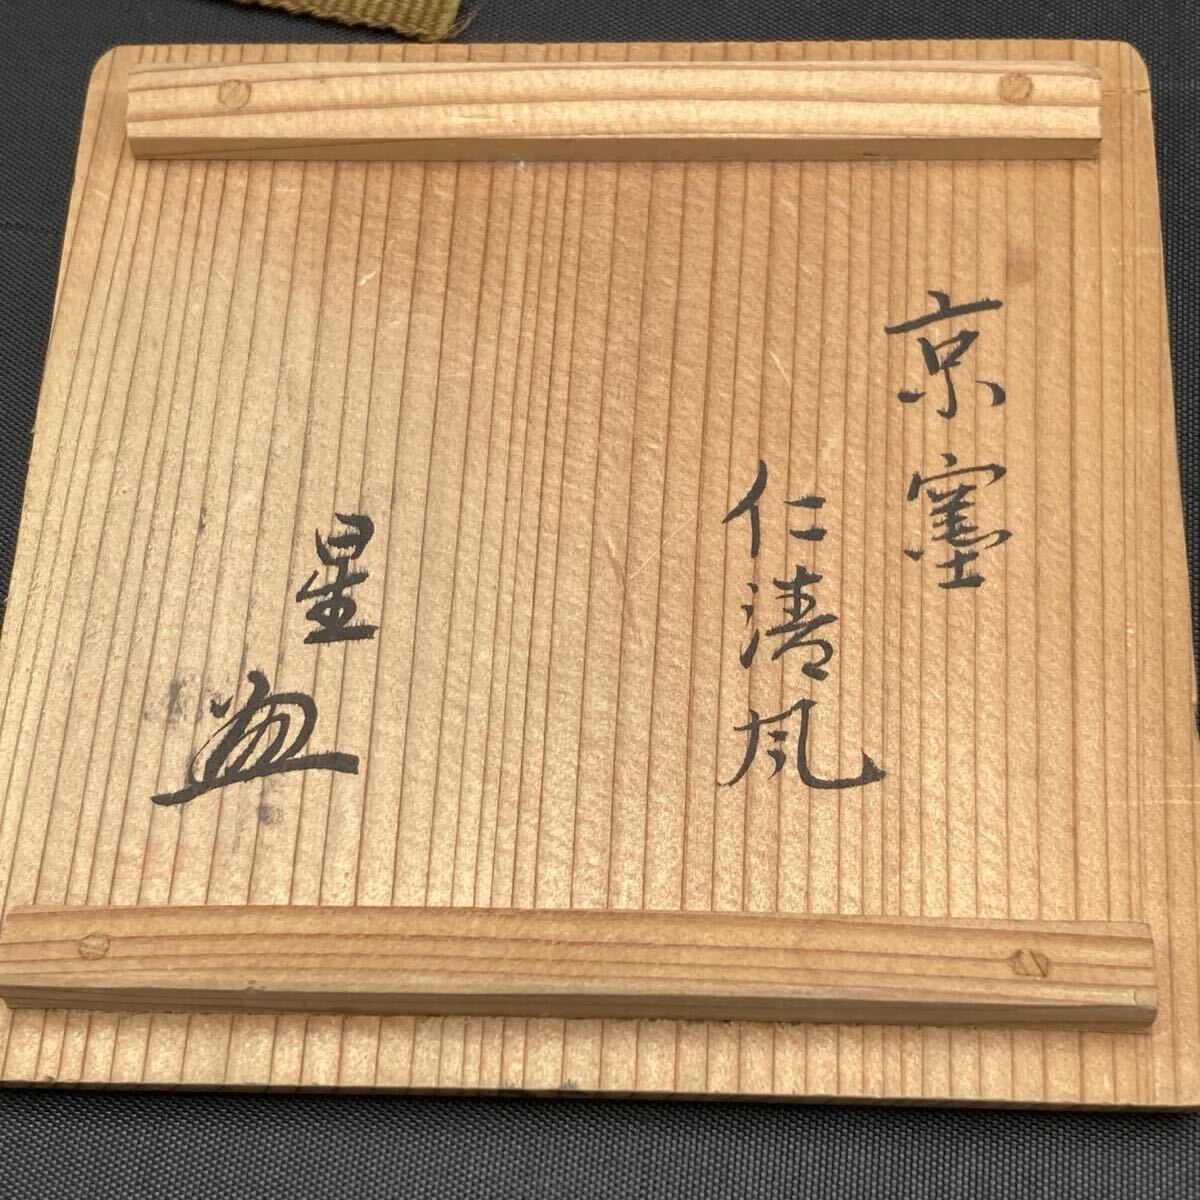 京窯
仁清風
星